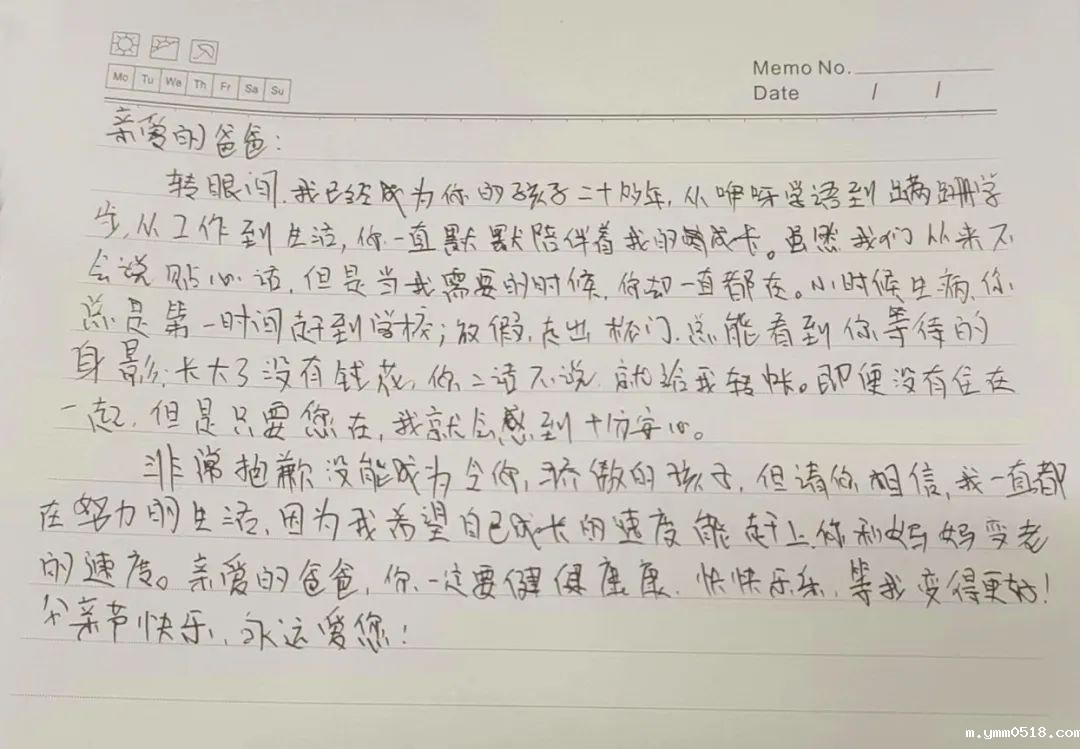 Mo Tu We Th Fr Sa Su
Memo No.
Date / /
亲爱的爸爸:
转眼间,我已经成为你的孩子二十多年,从咿呀学语到蹒跚学
步,从工作到生活,你一直默默陪伴着我的成长。虽然我们从来不
会说贴心话,但是当我需要的时候,你却一直都在。小时候生病,你
总是第一时间赶到学校;放假,走出校门,总能看到你等待的
身影;长大了没有钱花,你二话不说,就给我转帐。即便没有住在
一起,但是只要您在,我就会感到十分安心。
非常抱歉没能成为令你骄傲的孩子,但请你相信,我一直都
在努力的生活,因为我希望自己成长的速度能赶上你和妈妈变老
的速度。亲爱的爸爸,你一定要健健康康,快快乐乐,等我变得更好!
父亲节快乐,永远爱您!
m.ymm0518.com